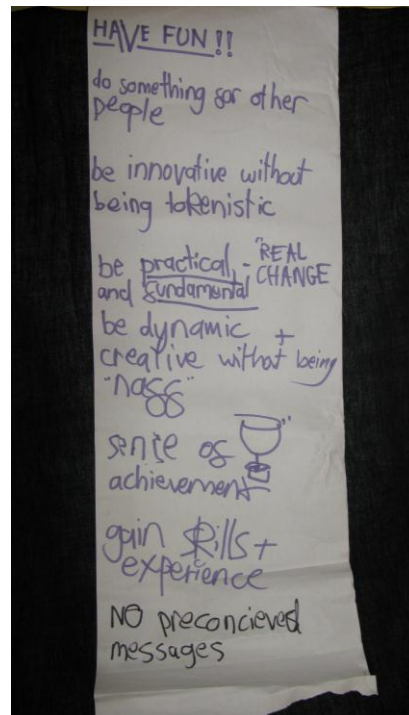 HAVE FUN!!
do something for other
people
be innovative without
being tokenistic
be practical, - "REAL
and fundamental CHANGE
be dynamic +
creative without being
"naff"
sense of
achievement
gain skills +
experience
NO preconcieved
messages